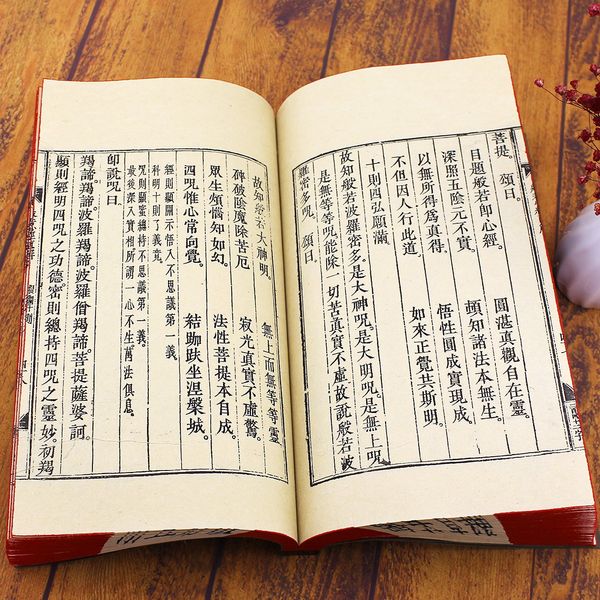 菩提。頌曰。
目題般若即心經。 圓湛真觀自在靈。
深照五陰元不實。 頓知諸法本無生。
以無所得為真得。 悟性圓成實現成。
不但因人行此道。 如來正覺共斯明。
十則四弘願滿
故知般若波羅蜜多。是大神咒。是大明咒。是無上咒。
是無等等咒。能除一切苦。真實不虛。故說般若波
羅密多咒。頌曰。
故知般若大神明。 無上而無等等靈
碎破陰魔除苦厄 寂光真實不虛驚。
眾生煩惱如幻。 法性菩提本自成。
四咒惟心常向覺。 結跏趺坐涅槃城。
經則顯開示悟入不思議第一義
科明十則了義。
咒則顯蜜總持不思議第一義。
最後深入實相。所謂一心不生萬法俱息。
即說咒曰。
羯諦羯諦。波羅羯諦。波羅僧羯諦。菩提薩婆訶。
顯則經明四咒之功德。密則總持四咒之靈妙。初羯